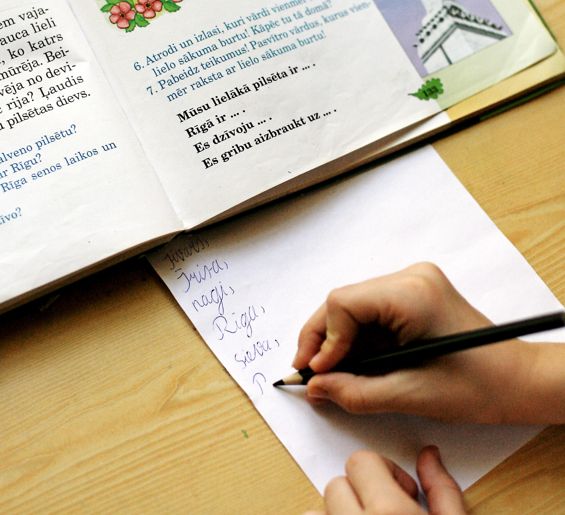 em vaja-
auca lieli
, ko katrs
mūrēja. Bei-
vēja no devi-
c rija? Ļaudis
pilsētas dievs.
alveno pilsētu?
ar Rīgu?
Rīga senos laikos un
tīvo?
6. Atrodi un izlasi, kuri vārdi vienmēr
lielo sākuma burtu! Kāpēc tu tā domā?
7. Pabeidz teikumus! Pasvītro vārdus, kurus vien-
mēr raksta ar lielo sākuma burtu!
Mūsu lielākā pilsēta ir ... .
Rīgā ir ... .
Es dzīvoju ... .
Es gribu aizbraukt uz ... .
nagi,
Rīga,
P